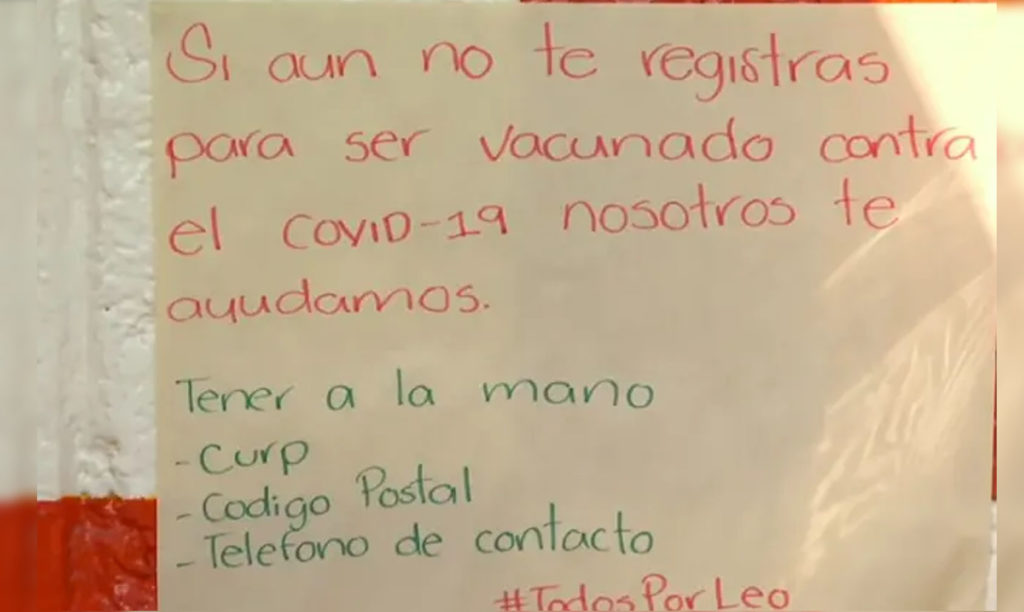 Si aun no te registras
para ser vacunado contra
el COVID-19 nosotros te
ayudamos.
Tener a la mano
- Curp
- Codigo Postal
- Telefono de contacto
#TodosPorLeo